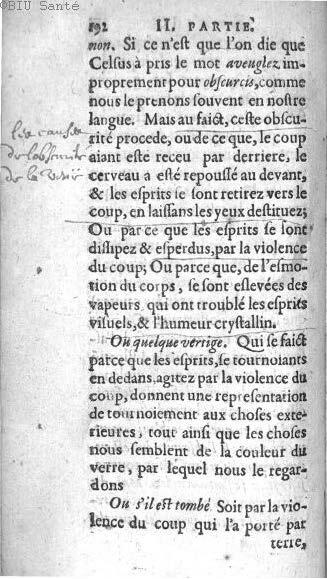 ©BIU Santé
192 II. PARTIE.
non. Si ce n'est que l'on die que
Celsus à pris le mot aveuglez, im-
proprement pour obscurcis, comme
nous le prenons souvent en nostre
langue. Mais au faict, ceste obscu-
les causes
rité procede, ou de ce que, le coup
de l'obscurité
aiant esté receu par derriere, le
de la veuë
cerveau a esté repoussé au devant,
& les esprits se sont retirez vers le
coup, en laissans les yeux destituez;
Ou par ce que les esprits se sont
dissipez & esperdus, par la violence
du coup; Ou parce que, de l'esmo-
tion du corps, se sont eslevées des
vapeurs qui ont troublé les esprits
visuels, & l'humeur crystallin.
Ou quelque vertige. Qui se faict
parce que les esprits, se tournoiants
en dedans, agitez par la violence du
coup, donnent une representation
de tournoiement aux choses exte-
rieures, tout ainsi que les choses
nous semblent de la couleur du
verre, par lequel nous le regar-
dons
Ou s'il est tombé. Soit par la vio-
lence du coup qui l'a porté par
terre,